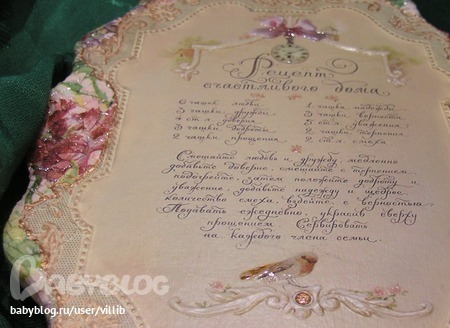 Рецепт
счастливого дома
6 чашек любви
3 чашки дружбы
4 ст.л. доверия
3 чашки доброты
2 чашки прощения
1 чашка надежды
3 чашки верности
5 ст.л. уважения
2 чашки терпения
2 ст.л. смеха
Смешайте любовь и дружбу, медленно
добавьте доверие, смешайте с терпением,
подогрейте, затем положите доброту и
уважение, добавьте надежду и щедрое
количество смеха, взбейте, с верностью.
Подавать ежедневно, украсив сверху
прощением. Сервировать
на каждого члена семьи.
BABYBLOG
babyblog.ru/user/villib